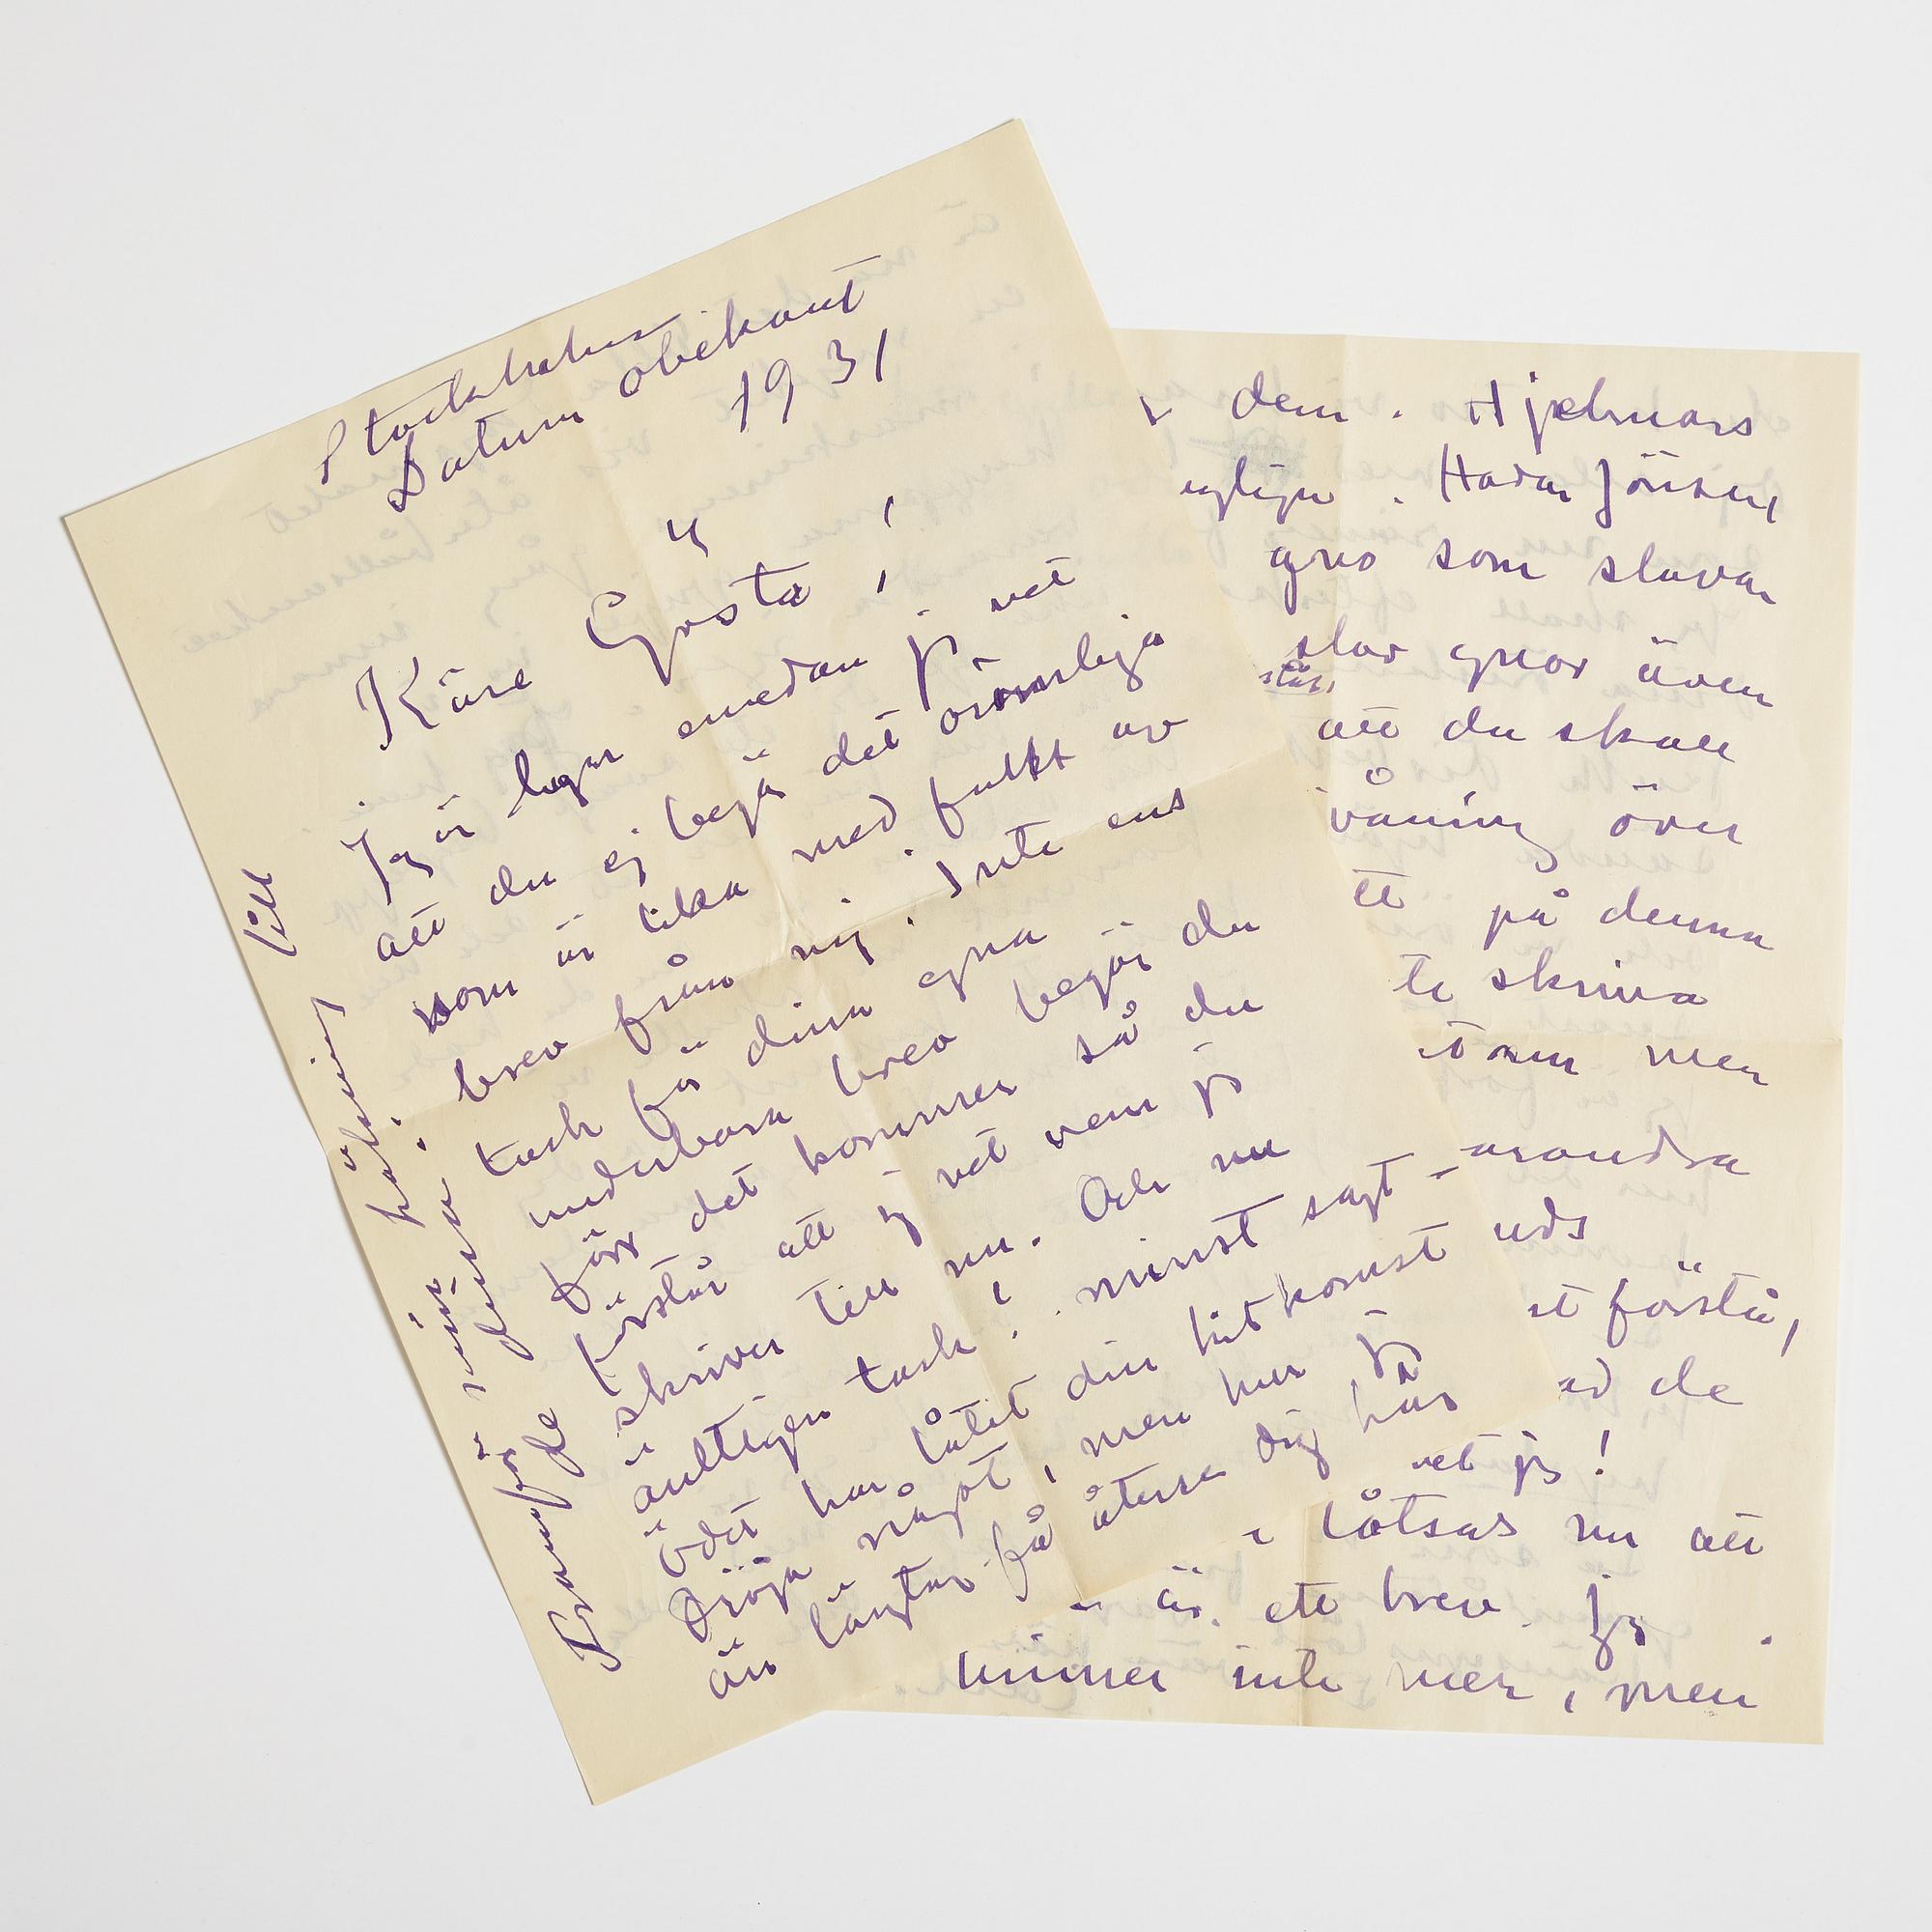 Stockholm
Datum obekant
1931
Käre Gösta!
Jag är lugn emedan jag vet
att du ej begär det orimliga
som är lika med punkt av
brev från mig. Inte ens
tack för dina egna
underbara brev begär du
förr det kommer så du
förstår att jag vet vem jag
skriver till nu. Och nu
äntligen tack! minst sagt
ödet har låtit din hitkomst
dröja något, men hur jag
än längtar få återse dig här
Framför de
mina hälsning till
dem. Hjelmars
Hadar Jönsen,
gno som slavar
slav gnor även
att du skall
våning över
på denna
te skriva
men
varandra
uds
förstå,
de
vet jag!
låtsas nu att
är ett brev. Jag
hinner inte mer, men